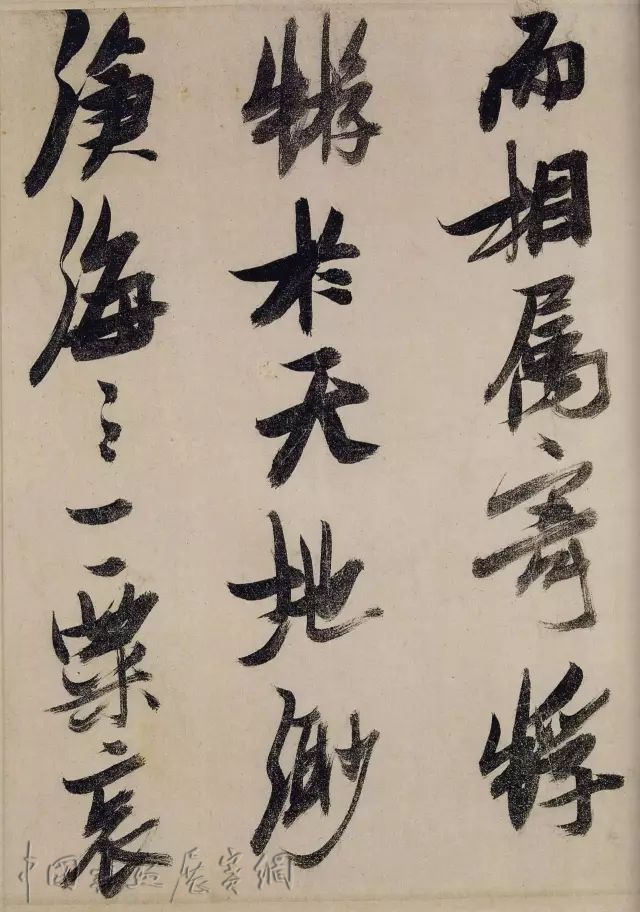 而相属寄蜉
蝣於天地渺
滄海之一粟哀
中國書法展賽網